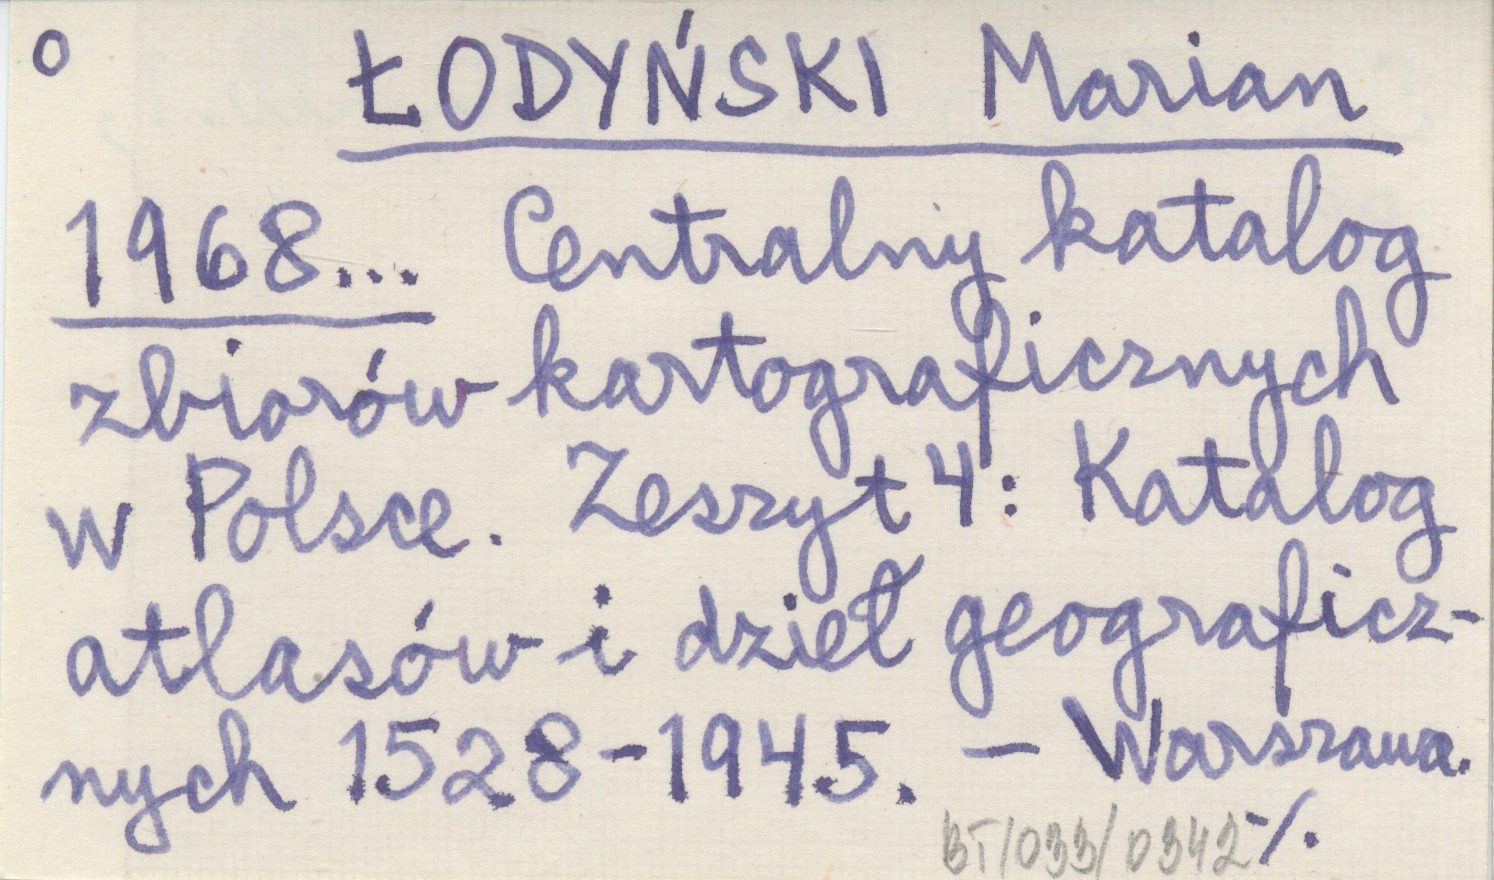 o ŁODYŃSKI Marian
1968... Centralny katalog
zbiorów kartograficznych
w Polsce. Zeszyt 4: Katalog
atlasów i dzieł geograficz-
nych 1528-1945. – Warszawa.
BT/033/0342 -/.